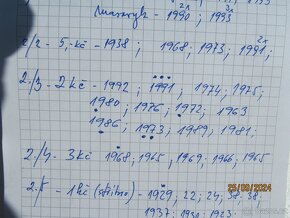 Masaryk - 1990 ; 1993
2x 3x
2/2 - 5,-kč - 1938 ; 1968, 1973 ; 1991 ;
2./3 - 2 kč - 1992, 1991, 1974, 1975,
1980, 1976, 1972, 1963
1986, 1973, 1989, 1981,
2./4 - 3 kč 1968, 1965, 1969, 1966, 1965
1 kč (stříbro) - 1929, 22; 24;
1937;
25/09/2024